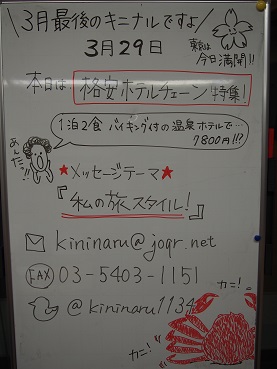 \3月最後のキニナルですよ/
3月29日
東京は
今日満開!!
本日は 格安ホテルチェーン特集!
あと
1泊2食 バイキング付の温泉ホテルで…
7800円!!?
★メッセージテーマ★
『私の旅スタイル!』
kininaru@joqr.net
FAX 03-5403-1151
@kininaru1134
カニ!
カニ!